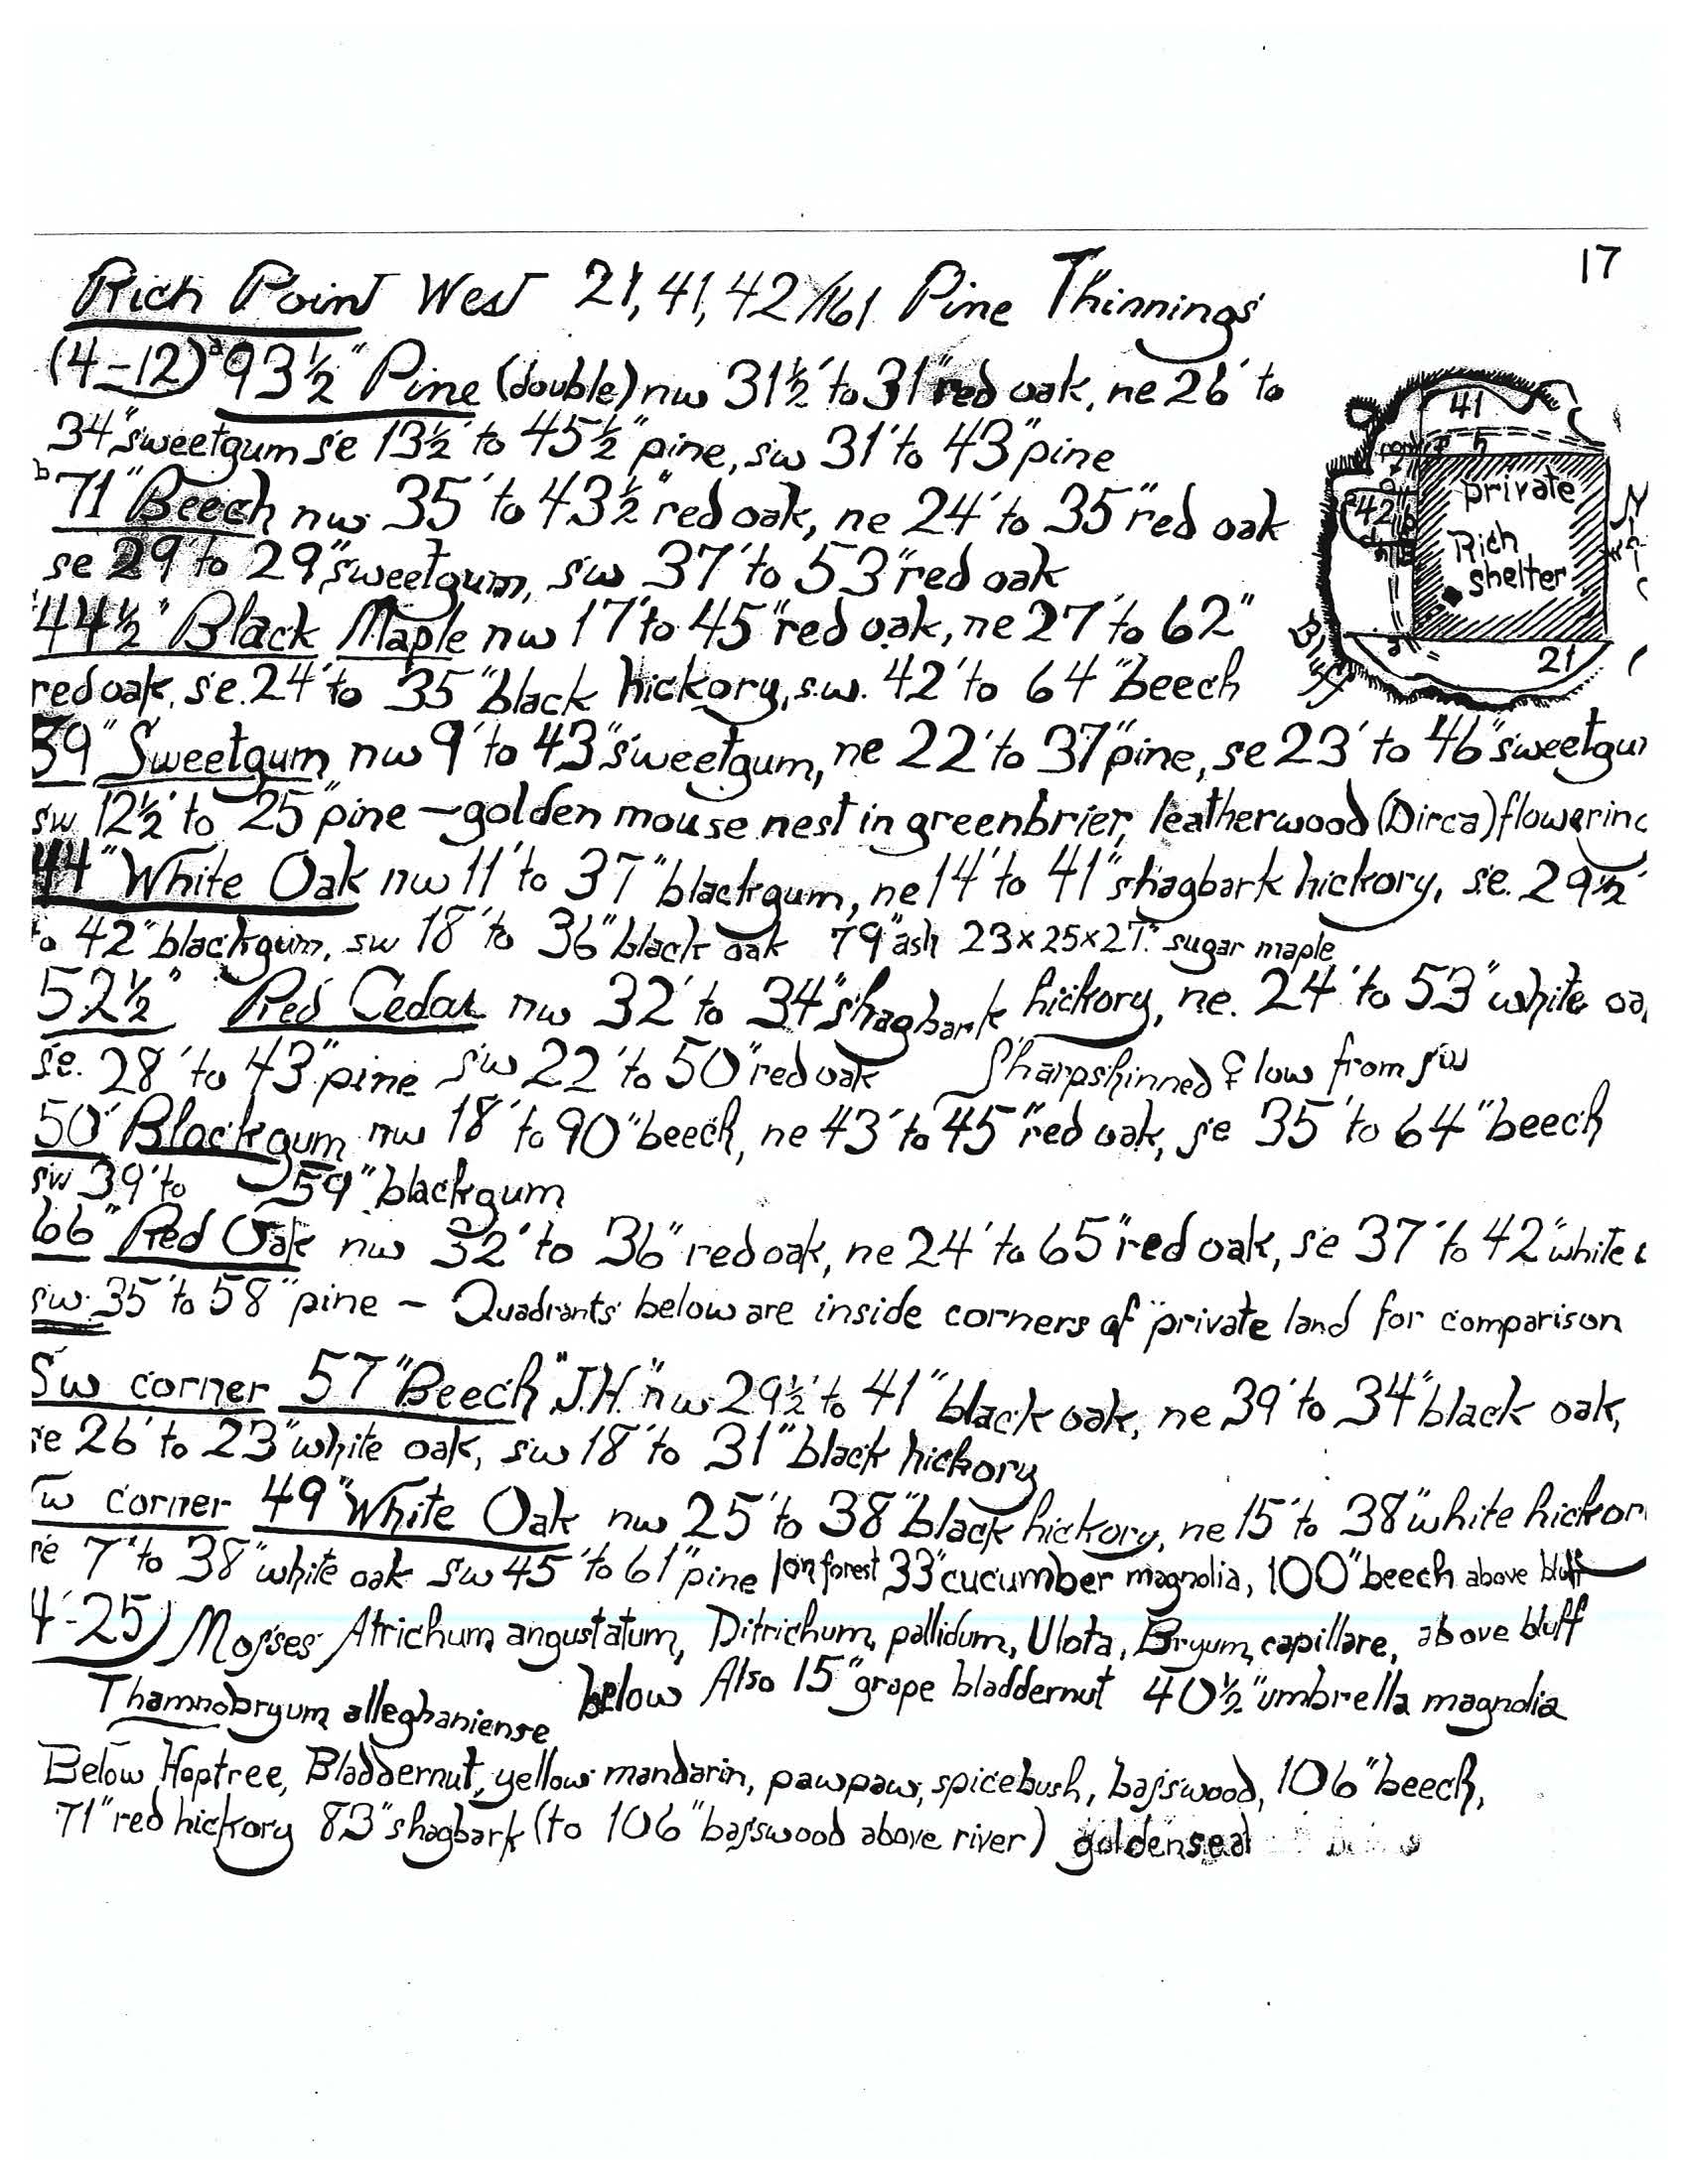 17
Rich Point West 21, 41, 42/161 Pine Thinnings
(4-12) a 93½" Pine (double) nw 31½' to 31" red oak, ne 26' to
34" sweetgum se 13½' to 45½" pine, sw 31' to 43" pine
b 71" Beech nw 35' to 43½" red oak, ne 24' to 35" red oak
se 29' to 29" sweetgum, sw 37' to 53" red oak
44½" Black Maple nw 17' to 45" red oak, ne 27' to 62"
red oak, se. 24' to 35" black hickory, s.w. 42' to 64" beech
39" Sweetgum nw 9' to 43" sweetgum, ne 22' to 37" pine, se 23' to 46" sweetgu
sw 12½' to 25" pine - golden mouse nest in greenbrier, leatherwood (Dirca) flowering
44" White Oak nw 11' to 37" blackgum, ne 14' to 41" shagbark hickory, se. 29½'
to 42" blackgum, sw 18' to 36" black oak 79" ash 23x25x2T. sugar maple
52½" Red Cedar nw 32' to 34" shagbark hickory, ne. 24' to 53" white oa
se. 28' to 43" pine sw 22' to 50" red oak Sharpshinned ♀ low from sw
50" Blackgum nw 18' to 90" beech, ne 43' to 45" red oak, se 35' to 64" beech
sw 39' to 59" blackgum
66" Red Oak nw 32' to 36" red oak, ne 24' to 65" red oak, se 37' to 42" white
sw 35' to 58" pine - Quadrants below are inside corners of "private land for comparison
Sw corner 57" Beech "J.H." nw 29½' to 41" black oak, ne 39' to 34" black oak,
se 26' to 23" white oak, sw 18' to 31" black hickory
w corner 49" White Oak nw 25' to 38" black hickory, ne 15' to 38" white hickor
se 7' to 38" white oak sw 45' to 61" pine on forest 33" cucumber magnolia, 100" beech above bluff
4-25) Mosses Atrichum angustatum, Ditrichum pallidum, Ulota, Bryum capillare, above bluff
Thamnobryum alleghaniense below Also 15" grape bladdernut 40½" umbrella magnolia
Below Hoptree, Bladdernut, yellow mandarin, pawpaw, spicebush, basswood, 106" beech,
71" red hickory 83" shagbark (to 106" basswood above river) goldenseal
41
private
42 b
Rich
shelter
N
Bluff
21